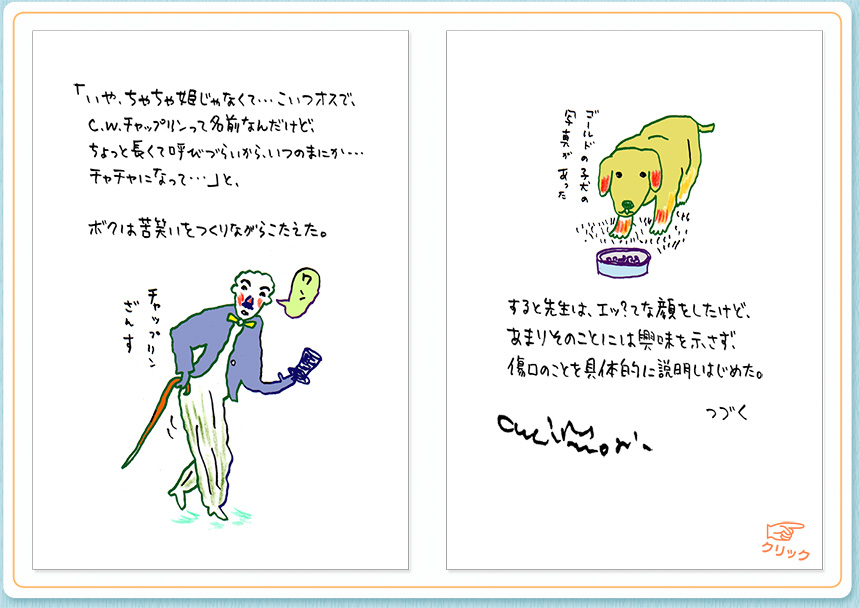 「いや、ちゃちゃ姫じゃなくて…こいつオスで、
C.W.チャップリンって名前なんだけど、
ちょっと長くて呼びづらいから、いつのまにか…
チャチャになって…」と、
ボクは苦笑いをつくりながらこたえた。
ワン
チャップリン
ざんす
ゴールドの子犬の
写真があった
すると先生は、エッ?てな顔をしたけど、
あまりそのことには興味を示さず、
傷口のことを具体的に説明しはじめた。
つづく
クリック